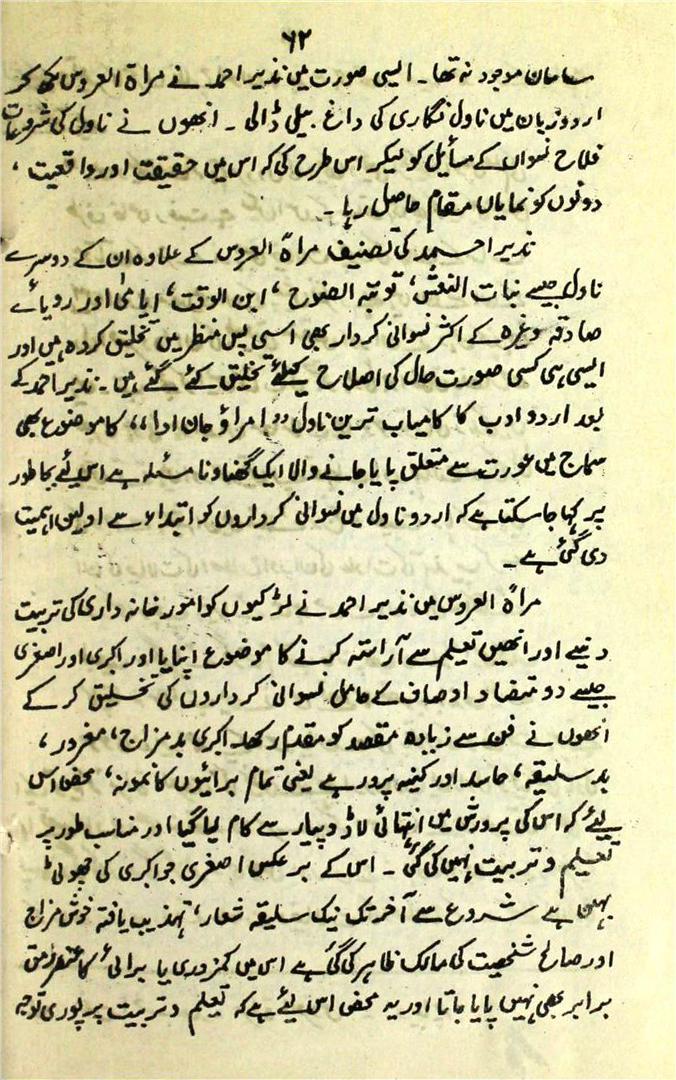 ۶۲
سامان موجود نہ تھا۔ ایسی صورت میں نذیر احمد نے مراۃ العروس لکھ کر
اردو زبان میں ناول نگاری کی داغ بیلی ڈالی۔ انھوں نے ناول کی شروعات
فلاح نسواں کے مسائیل کو لیکر اس طرح کی کہ اس میں حقیقت اور واقعیت،
دونوں کو نمایاں مقام حاصل رہا۔
نذیر احمد کی تصنیف مراۃ العروس کے علاوہ ان کے دوسرے
ناول جیسے نبات النعش، توبتہ النصوح، ابن الوقت، ایامیٰ اور رویائے
صادقہ وغیرہ کے اکثر نسوانی کردار بھی اسی پس منظر میں تخلیق کردہ ہیں اور
ایسی ہی کسی صورت حال کی اصلاح کیلئے تخلیق کئے گئے ہیں۔ نذیر احمد کے
بعد اردو ادب کا کامیاب ترین ناول ،،امراؤ جان ادا،، کا موضوع بھی
سماج میں عورت سے متعلق پایا جانے والا ایک گھناونا مسئلہ ہے اس لئے بجا طور
پر کہا جا سکتا ہے کہ اردو ناول میں نسوانی کرداروں کو ابتداء سے اولین اہمیت
دی گئی ہے۔
مراۃ العروس میں نذیر احمد نے لڑکیوں کو امور خانہ داری کی تربیت
دینے اور انھیں تعلیم سے آراستہ کرنے کا موضوع اپنایا اور اکبری اور اصغری
جیسے دو متضاد اوصاف کے حامل نسوانی کرداروں کی تخلیق کر کے
انھوں نے فن سے زیادہ مقصد کو مقدم رکھا۔ اکبری بد مزاج، مغرور،
بد سلیقہ، حاسد اور کینہ پرور ہے یعنی تمام برائیوں کا نمونہ، محض اس
لیئے کہ اس کی پرورش میں انتہائی لاڈ و پیار سے کام لیا گیا اور مناسب طور پر
تعلیم و تربیت نہیں کی گئی۔ اس کے برعکس اصغری جو اکبری کی چھوٹی
بہن ہے شروع سے آخر تک نیک سلیقہ شعار، تہذیب یافتہ خوش مزاج
اور صالح شخصیت کی مالک ظاہر کی گئی ہے اس میں کمزوری یا برائی کا عنصر رمق
برابر بھی نہیں پایا جاتا اور یہ محض اس لیئے ہے کہ تعلیم و تربیت پر پوری توجہ